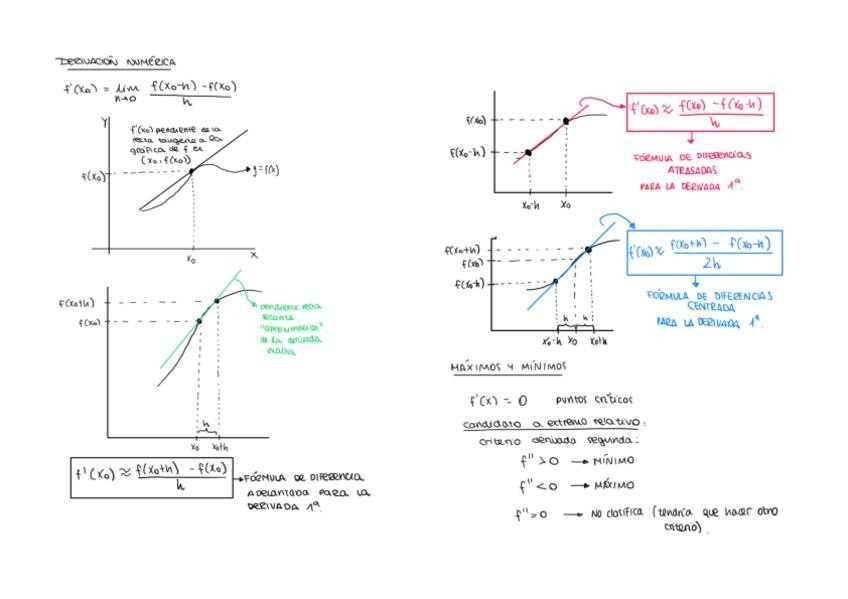 DERIVACIÓN NUMÉRICA
f'(x₀) = lim h→0 f(x₀-h) - f(x₀) / h
Y
f'(x₀) pendiente de la
recta tangene a la
gráfica de f en
(x₀, f(x₀))
f(x₀)
y = f(x)
x₀
X
f(x₀+h)
f(x₀)
pendiente recta
secante
"aproximación"
de la derivada
exacta
h
x₀ x₀+h
f'(x₀) ≈ f(x₀+h) - f(x₀) / h
FÓRMULA DE DIFERENCIA
ADELANTADA PARA LA
DERIVADA 1ª.
f(x₀)
f(x₀-h)
x₀-h x₀
f'(x₀) ≈ f(x₀) - f(x₀-h) / h
FÓRMULA DE DIFERENCIAS
ATRASADAS
PARA LA DERIVADA 1ª.
f(x₀+h)
f(x₀)
f(x₀-h)
h h
x₀-h x₀ x₀+h
f'(x₀) ≈ f(x₀+h) - f(x₀-h) / 2h
FÓRMULA DE DIFERENCIAS
CENTRADA
PARA LA DERIVADA 1ª.
MÁXIMOS Y MÍNIMOS
f'(x) = 0 puntos críticos
candidato a extremo relativo:
criterio derivada segunda:
f'' > 0 → MÍNIMO
f'' < 0 → MÁXIMO
f'' = 0 → No clasifica (tendría que hacer otro
criterio).